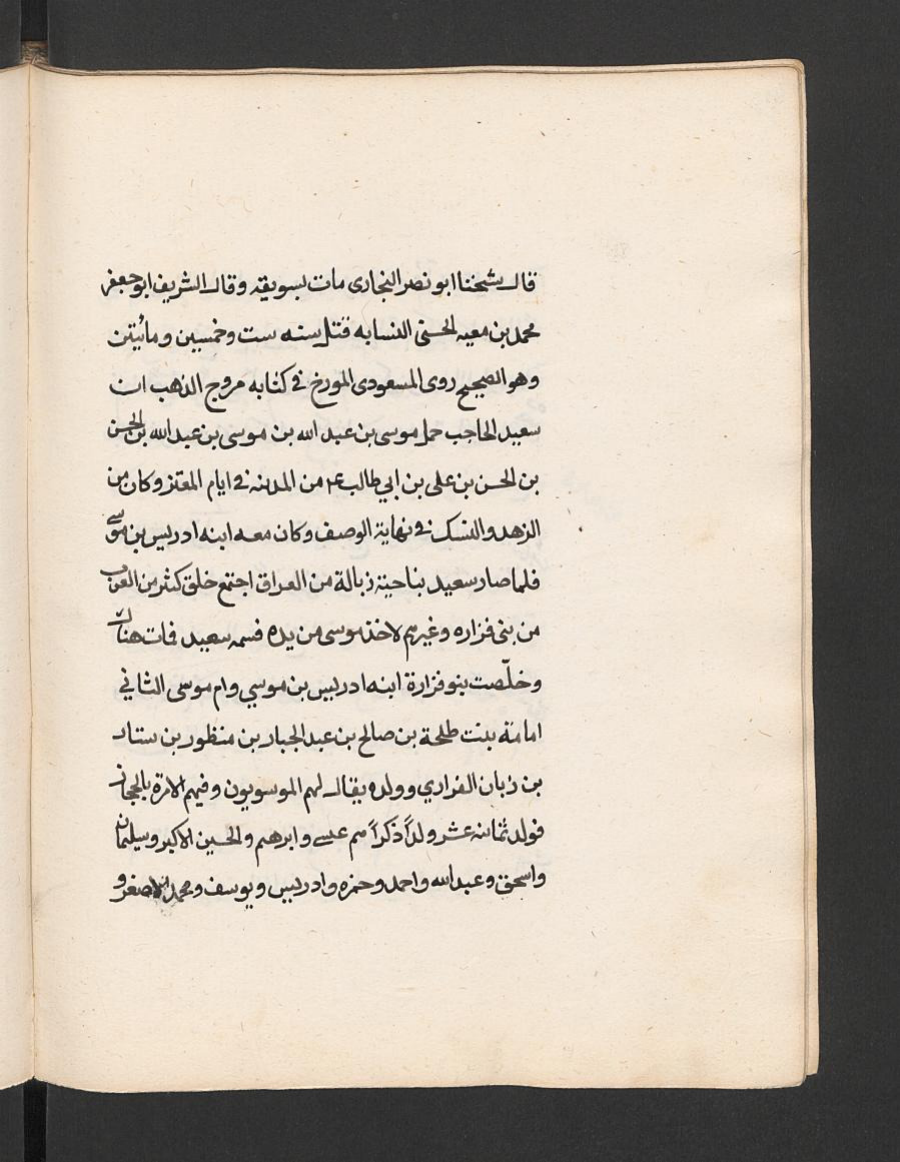 قال شيخنا ابو نصر البخارى مات بسويقه وقال الشريف ابو جعفر
محمد بن معيه الحسنى النسابه قتل سنه ست وخمسين ومائيتن
وهو الصحيح روى المسعودى المورخ فى كتابه مروج الذهب ان
سعيد الحاجب حمل موسى بن عبد الله بن موسى بن عبد الله بن الحسن
بن الحسن بن على بن ابي طالب ع من المدينه فى ايام المعتز وكان من
الزهد والنسك فى نهاية الوصف وكان معه ابنه ادريس بن موسى
فلما صار سعيد بناحية زبالة من العراق اجتمع خلق كثير من العرب
من بنى فزاره وغيرهم لاخذ موسى من يده فسمه سعيد فمات هناك
وخلّصت بنو فزارة ابنه ادريس بن موسي وام موسى الثاني
امامة بنت طلحة بن صالح بن عبد الجبار بن منظور بن
بن زبان الفزاري وولده يقال لهم الموسويون وفيهم الامرة بالحجاز
فولد ثمانيه عشر ولداً ذكراً هم عيسى وابرهيم والحسين الاكبر وسليمان
واسحق وعبد الله واحمد وحمزه وادريس ويوسف ومحمد الاصغر و